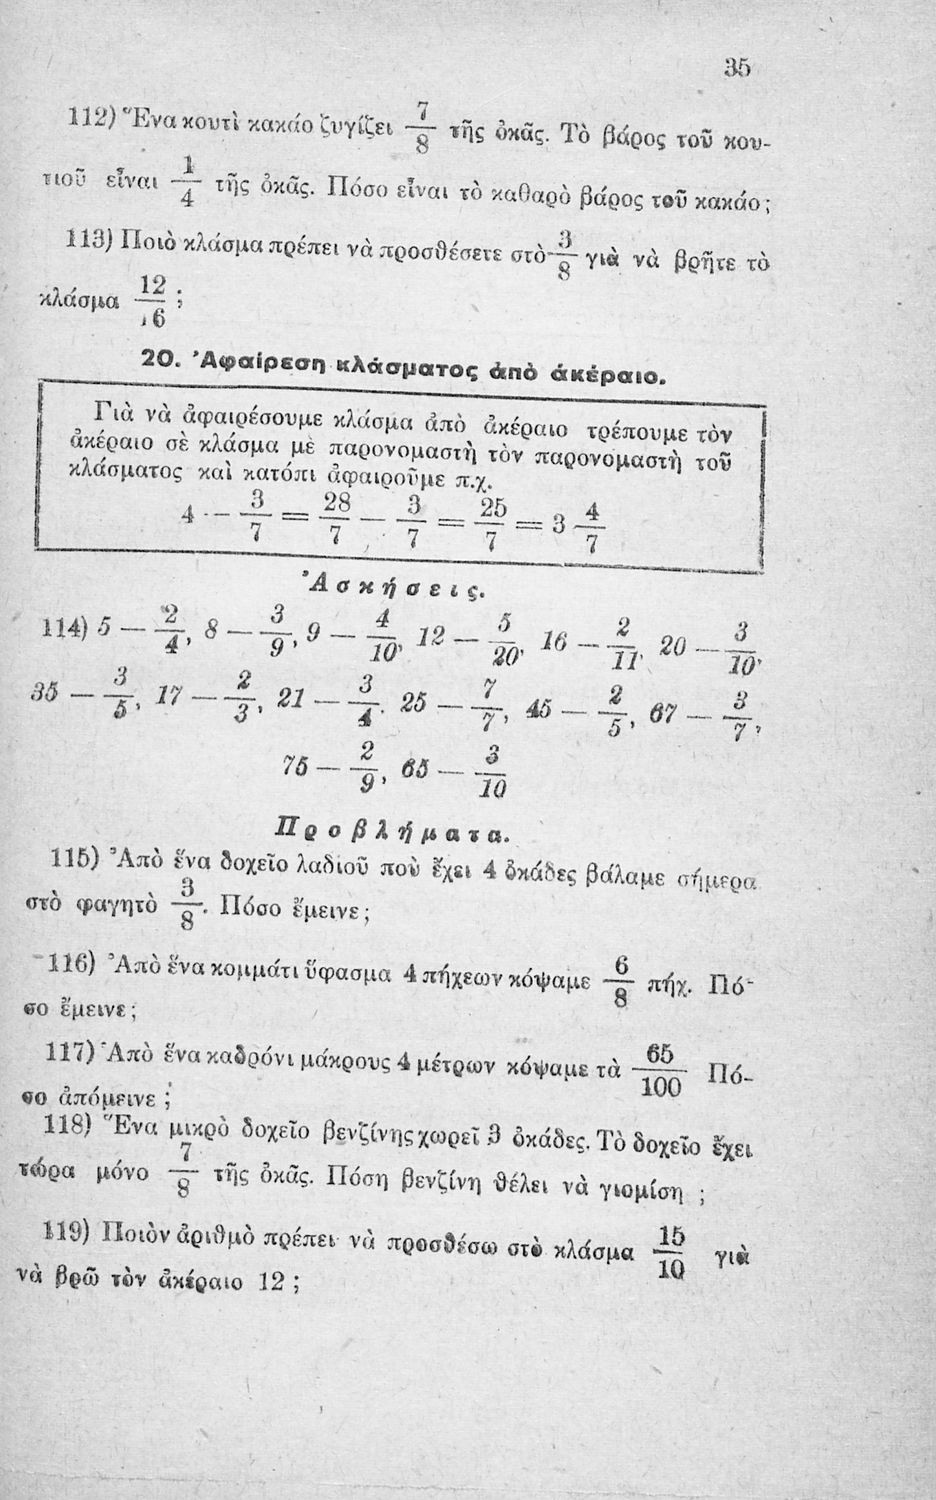 35
112) Ἕνα κουτὶ κακάο ζυγίζει 7/8 τῆς ὀκᾶς. Τὸ βάρος τοῦ κου-
τιοῦ εἶναι 1/4 τῆς ὀκᾶς. Πόσο εἶναι τὸ καθαρὸ βάρος τοῦ κακάο;
113) Ποιὸ κλάσμα πρέπει νὰ προσθέσετε στὸ 3/8 γιὰ νὰ βρῆτε τὸ
κλάσμα 12/16 ;
20. Ἀφαίρεση κλάσματος ἀπὸ ἀκέραιο.
Γιὰ νὰ ἀφαιρέσουμε κλάσμα ἀπὸ ἀκέραιο τρέπουμε τὸν
ἀκέραιο σὲ κλάσμα μὲ παρονομαστὴ τὸν παρονομαστὴ τοῦ
κλάσματος καὶ κατόπι ἀφαιροῦμε π.χ.
4 — 3/7 = 28/7 — 3/7 = 25/7 = 3 4/7
Ἀσκήσεις.
114) 5 — 2/4, 8 — 3/9, 9 — 4/10, 12 — 5/20, 16 — 2/11, 20 — 3/10,
35 — 3/5, 17 — 2/3, 21 — 3/4. 25 — 7/7, 45 — 2/5, 67 — 3/7,
75 — 2/9, 65 — 3/10
Προβλήματα.
115) Ἀπὸ ἕνα δοχεῖο λαδιοῦ ποὺ ἔχει 4 ὀκάδες βάλαμε σήμερα
στὸ φαγητὸ 3/8. Πόσο ἔμεινε;
116) Ἀπὸ ἕνα κομμάτι ὕφασμα 4 πήχεων κόψαμε 6/8 πήχ. Πό-
σο ἔμεινε;
117) Ἀπὸ ἕνα καδρόνι μάκρους 4 μέτρων κόψαμε τὰ 65/100 Πό-
σο ἀπόμεινε ;
118) Ἕνα μικρὸ δοχεῖο βενζίνης χωρεῖ 3 ὀκάδες. Τὸ δοχεῖο ἔχει
τώρα μόνο 7/8 τῆς ὀκᾶς. Πόση βενζίνη θέλει νὰ γιομίση ;
119) Ποιὸν ἀριθμὸ πρέπει νὰ προσθέσω στὸ κλάσμα 15/10 γιὰ
νὰ βρῶ τὸν ἀκέραιο 12 ;